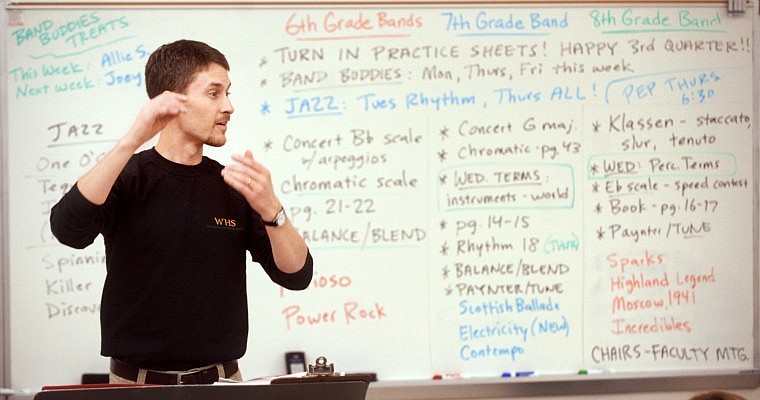 BAND BUDDIES
TREATS
This Week: Allie S.
Next week: Joey
JAZZ
One O'
Spinnin
Killer
Discov
6th Grade Bands 7th Grade Band 8th Grade Band
* TURN IN PRACTICE SHEETS! HAPPY 3rd QUARTER!!
* BAND BUDDIES: Mon, Thurs, Fri this week
* JAZZ: Tues Rhythm, Thurs ALL!
PEP THURS
6:30
* Concert Bb scale
w/arpeggios
chromatic scale
pg. 21-22
BALANCE/BLEND
ioso
Power Rock
* Concert G maj.
* chromatic-pg.43
* WED. TERMS:
instruments-world
* pg. 14-15
* Rhythm 18 (THUR)
* BALANCE/BLEND
* PAYNTER/TUNE
Scottish Ballade
Electricity (New)
Contempo
* Klassen - staccato,
slur, tenuto
* WED: Perc. Terms
* Eb scale - speed contest
* Book - pg. 16-17
* Paynter/TUNE
Sparks
Highland Legend
Moscow, 1941
Incredibles
CHAIRS-FACULTY MTG.
WHS